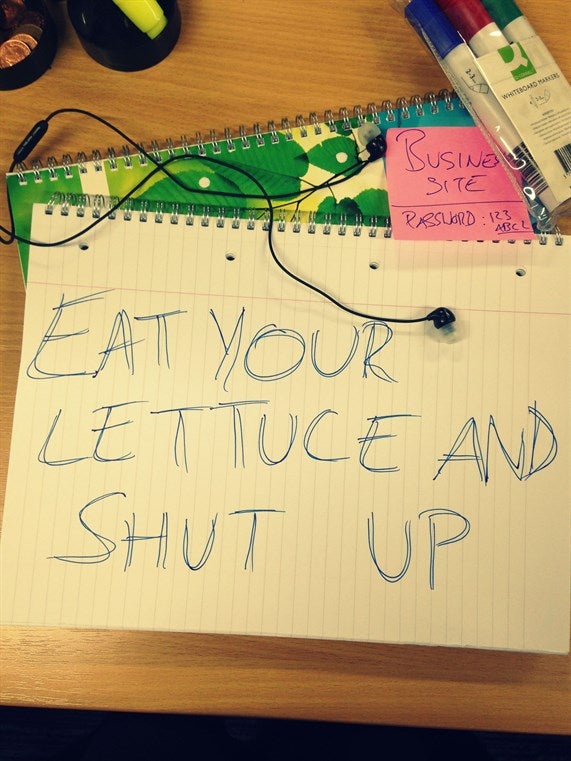 BUSINE
SITE
PASSWORD: 123
ABC2
WHITEBOARD MARKERS
EAT YOUR
LETTUCE AND
SHUT UP